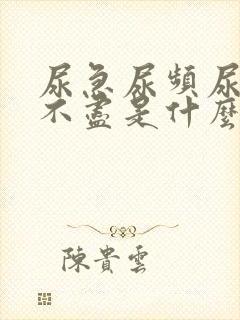 尿急尿頻尿
不盡是什麼
陳貴雲